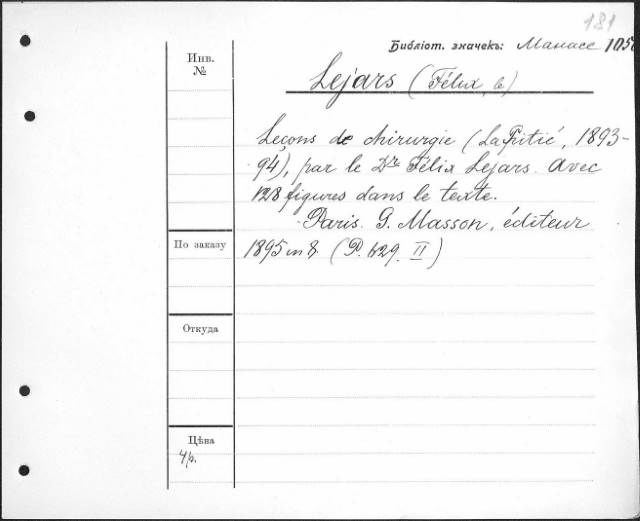 181
Библіот. значекъ: Манасе 1050
Инв.
№
Lejars (Félix, le)
Leçons de chirurgie (La Pitié, 1893-
94), par le Dr. Félix Lejars. Avec
128 figures dans le texte.
Paris. G. Masson, éditeur
По заказу
1895 in 8 (P. 629. II)
Откуда
Цѣна
4р.